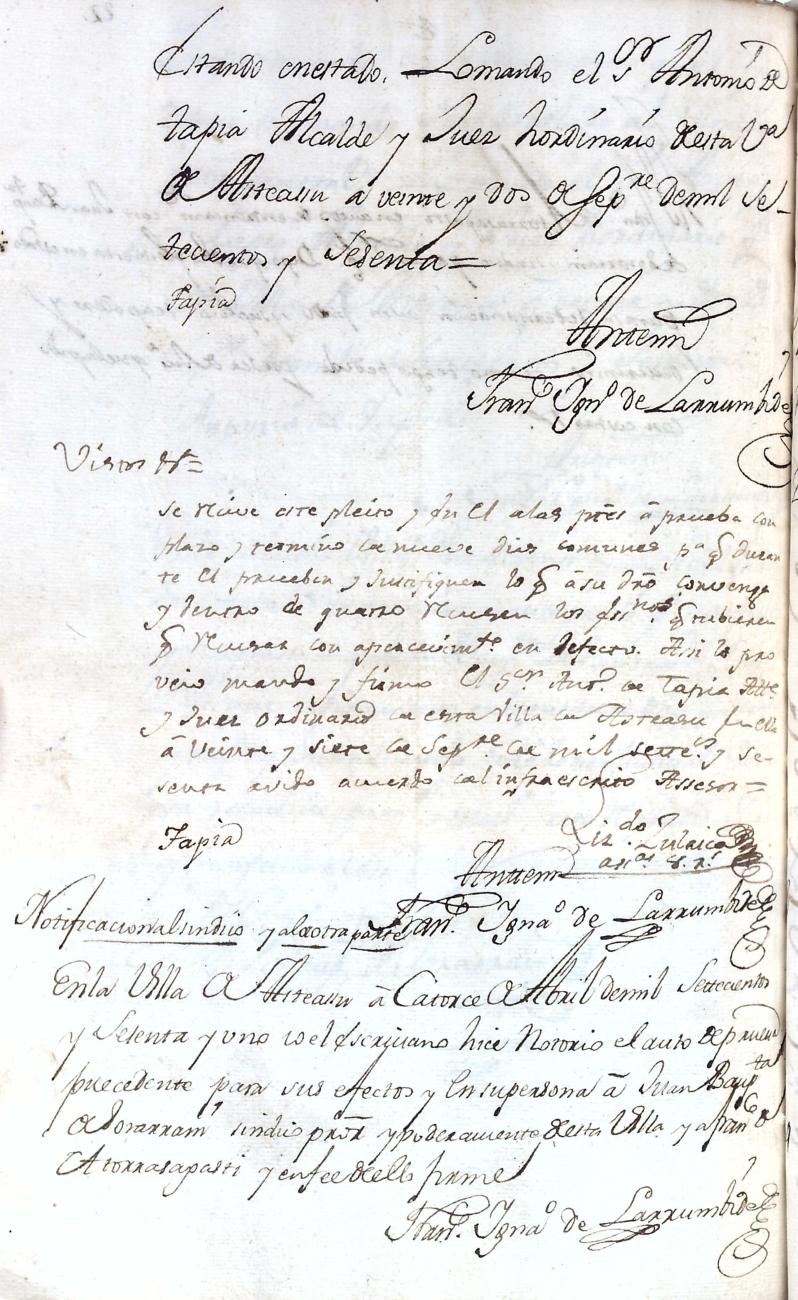 Estando enestado. Lo mando el Sor Antonio de
tapia Alcalde y Juez hordinario desta Va
de Asteasu â veinte y dos de Sepre de mil se-
tecientos y Sesenta =
Tapia
Antemi
Frano Igno de Larrumbide
Vistos &a =
se reçive este pleito y en el alas ptes â prueba con
plazo y termino de nueve dias comunes pa q duran
te el prueben y Justifiquen lo q â su dro convenga
y dentro de quatro recusen los essnos q tubieren
q recusar con apercevimto en defecto. Assi lo pro
veio mando y firmo el Sor Anto de Tapia Alce
y Juez ordinario de esta Villa de Asteasu en ella
â Veinte y siete de Sepre de mil settos y se-
senta avido acuerdo del infraescrito Assesor =
Tapia
Lizdo Zulaica
Antemi
Frano Ignao de Larrumbide
Notificacion al sindico y ala otra parte
Enla Villa de Asteasu â Catorce de Abril de mil Settecientos
y Sesenta y uno io el Escrivano hice Notorio el auto de prueva
precedente para sus efectos y En su persona â Juan Bapta
de sindico pror y poderaviente desta Villa y a Franco de
Atorrasagasti y en fee de ello firme
Frano Ignao de Larrumbide